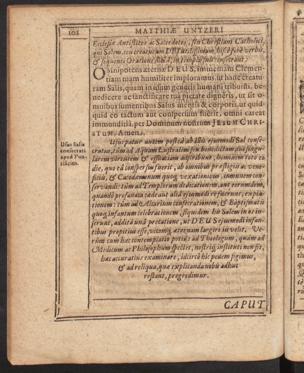 102 MATTHIÆ UNTZERI
Ecclesiæ Antistites ac Sacerdotes, seu Christiani Catholici,
qui Salem, creaturam DEI
& sequenti Oratione
Omnipotens æterne DEUS, immensam Clemen-
tiam tuam humiliter imploramus, ut hanc creatu-
ram Salis, quam in usum generis humani tribuisti, be-
nedicere ac sanctificare tua pietate digneris, ut sit o-
mnibus sumentibus Salus mentis & corporis, ut quid-
quid eo tactum aut conspersum fuerit, omni careat
immunditia, per Dominum nostrum JESUM CHRI-
STUM, Amen.
Usus Salis
consecrati
apud Pon-
tificios.
Usurpatur autem postea ab illis ejusmodi Sal conse-
cratus, tum ad Aquam Lustralem
larem virtutem & efficaciam
die, qua eâ conspersi fuerit, ab omnibus præstigiis ac vene-
ficiis, & Cacodæmonum quoque vexationibus, immunem con-
servandi: tum ad Templorum dedicationem, aut eorundem,
quando profanata
tionem: tum ad Altarium consecrationem, & Baptismatis
quoque infantum celebrationem, siquidem hic Salem in os in-
serunt, addita unà precatione, ut DEUS ejusmodi infanti-
bus propitius esse, vitamque æternam largiri iis velit. Ve-
rùm cum hæc contemplatio potiùs ad Theologum, quàm ad
Medicum ac Philosophum spectet, nostrique instituti non sit,
hæc accuratius examinare, idcirco hic pedem figimus,
& ad reliqua, quæ explicanda nobis adhuc
restant, progredimur.
CAPUT